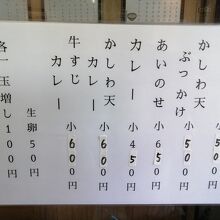 かしわ天
ぶっかけ 小550円
あいのせ 小655円
カレー 小455円
かしわ天
カレー 小600円
牛すじ
カレー 小600円
生卵50円
各一玉増し100円